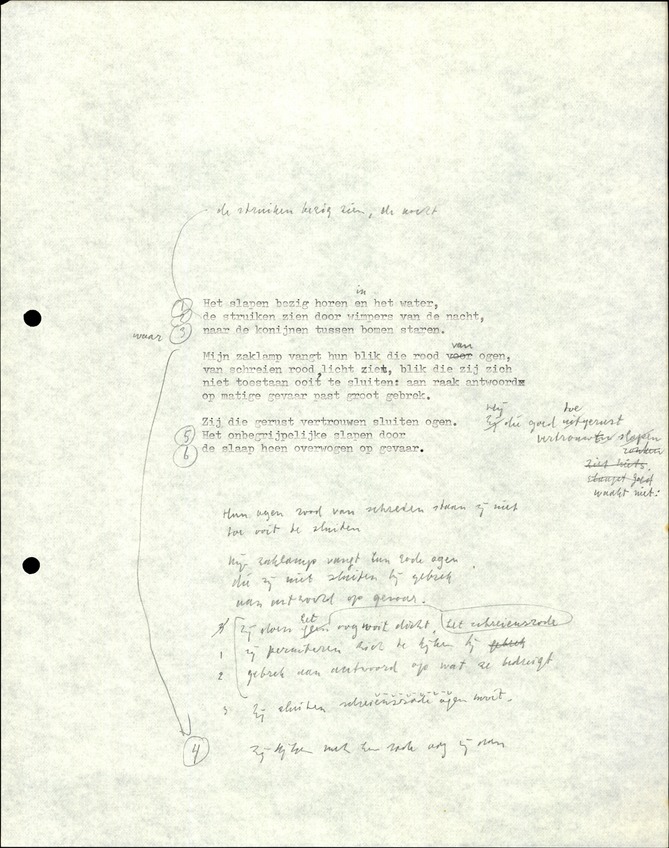 de struiken bezig zien, de
in
1 Het slapen bezig horen en het water,
2 de struiken zien door wimpers van de nacht,
3 naar de konijnen tussen bomen staren.
waar
Mijn zaklamp vangt hun blik die rood voor van ogen,
van schreien rood, licht ziet, blik die zij zich
niet toestaan ooit te sluiten: aan raak antwoord
op matige gevaar past groot gebrek.
Zij die gerust vertrouwen sluiten ogen.
5 Het onbegrijpelijke slapen door
6 de slaap heen overwogen op gevaar.
Wij die goed uitgerust
toe
vertrouwen slapen
zonder
ziet niets.
waakt niet:
Hun ogen rood van schreien staan zij niet
toe ooit te sluiten
Mijn zaklamp vangt hun rode ogen
die zij niet sluiten bij gebrek
aan antwoord op gevaar.
Zij doen het oog nooit dicht, het schreiensrode
1 zij permitteren zich te kijken bij gebrek
2 gebrek aan antwoord op wat ze bedreigt
3 Zij sluiten schreiensrode ogen nooit.
4 Zij kijken met hun rode oog mij aan